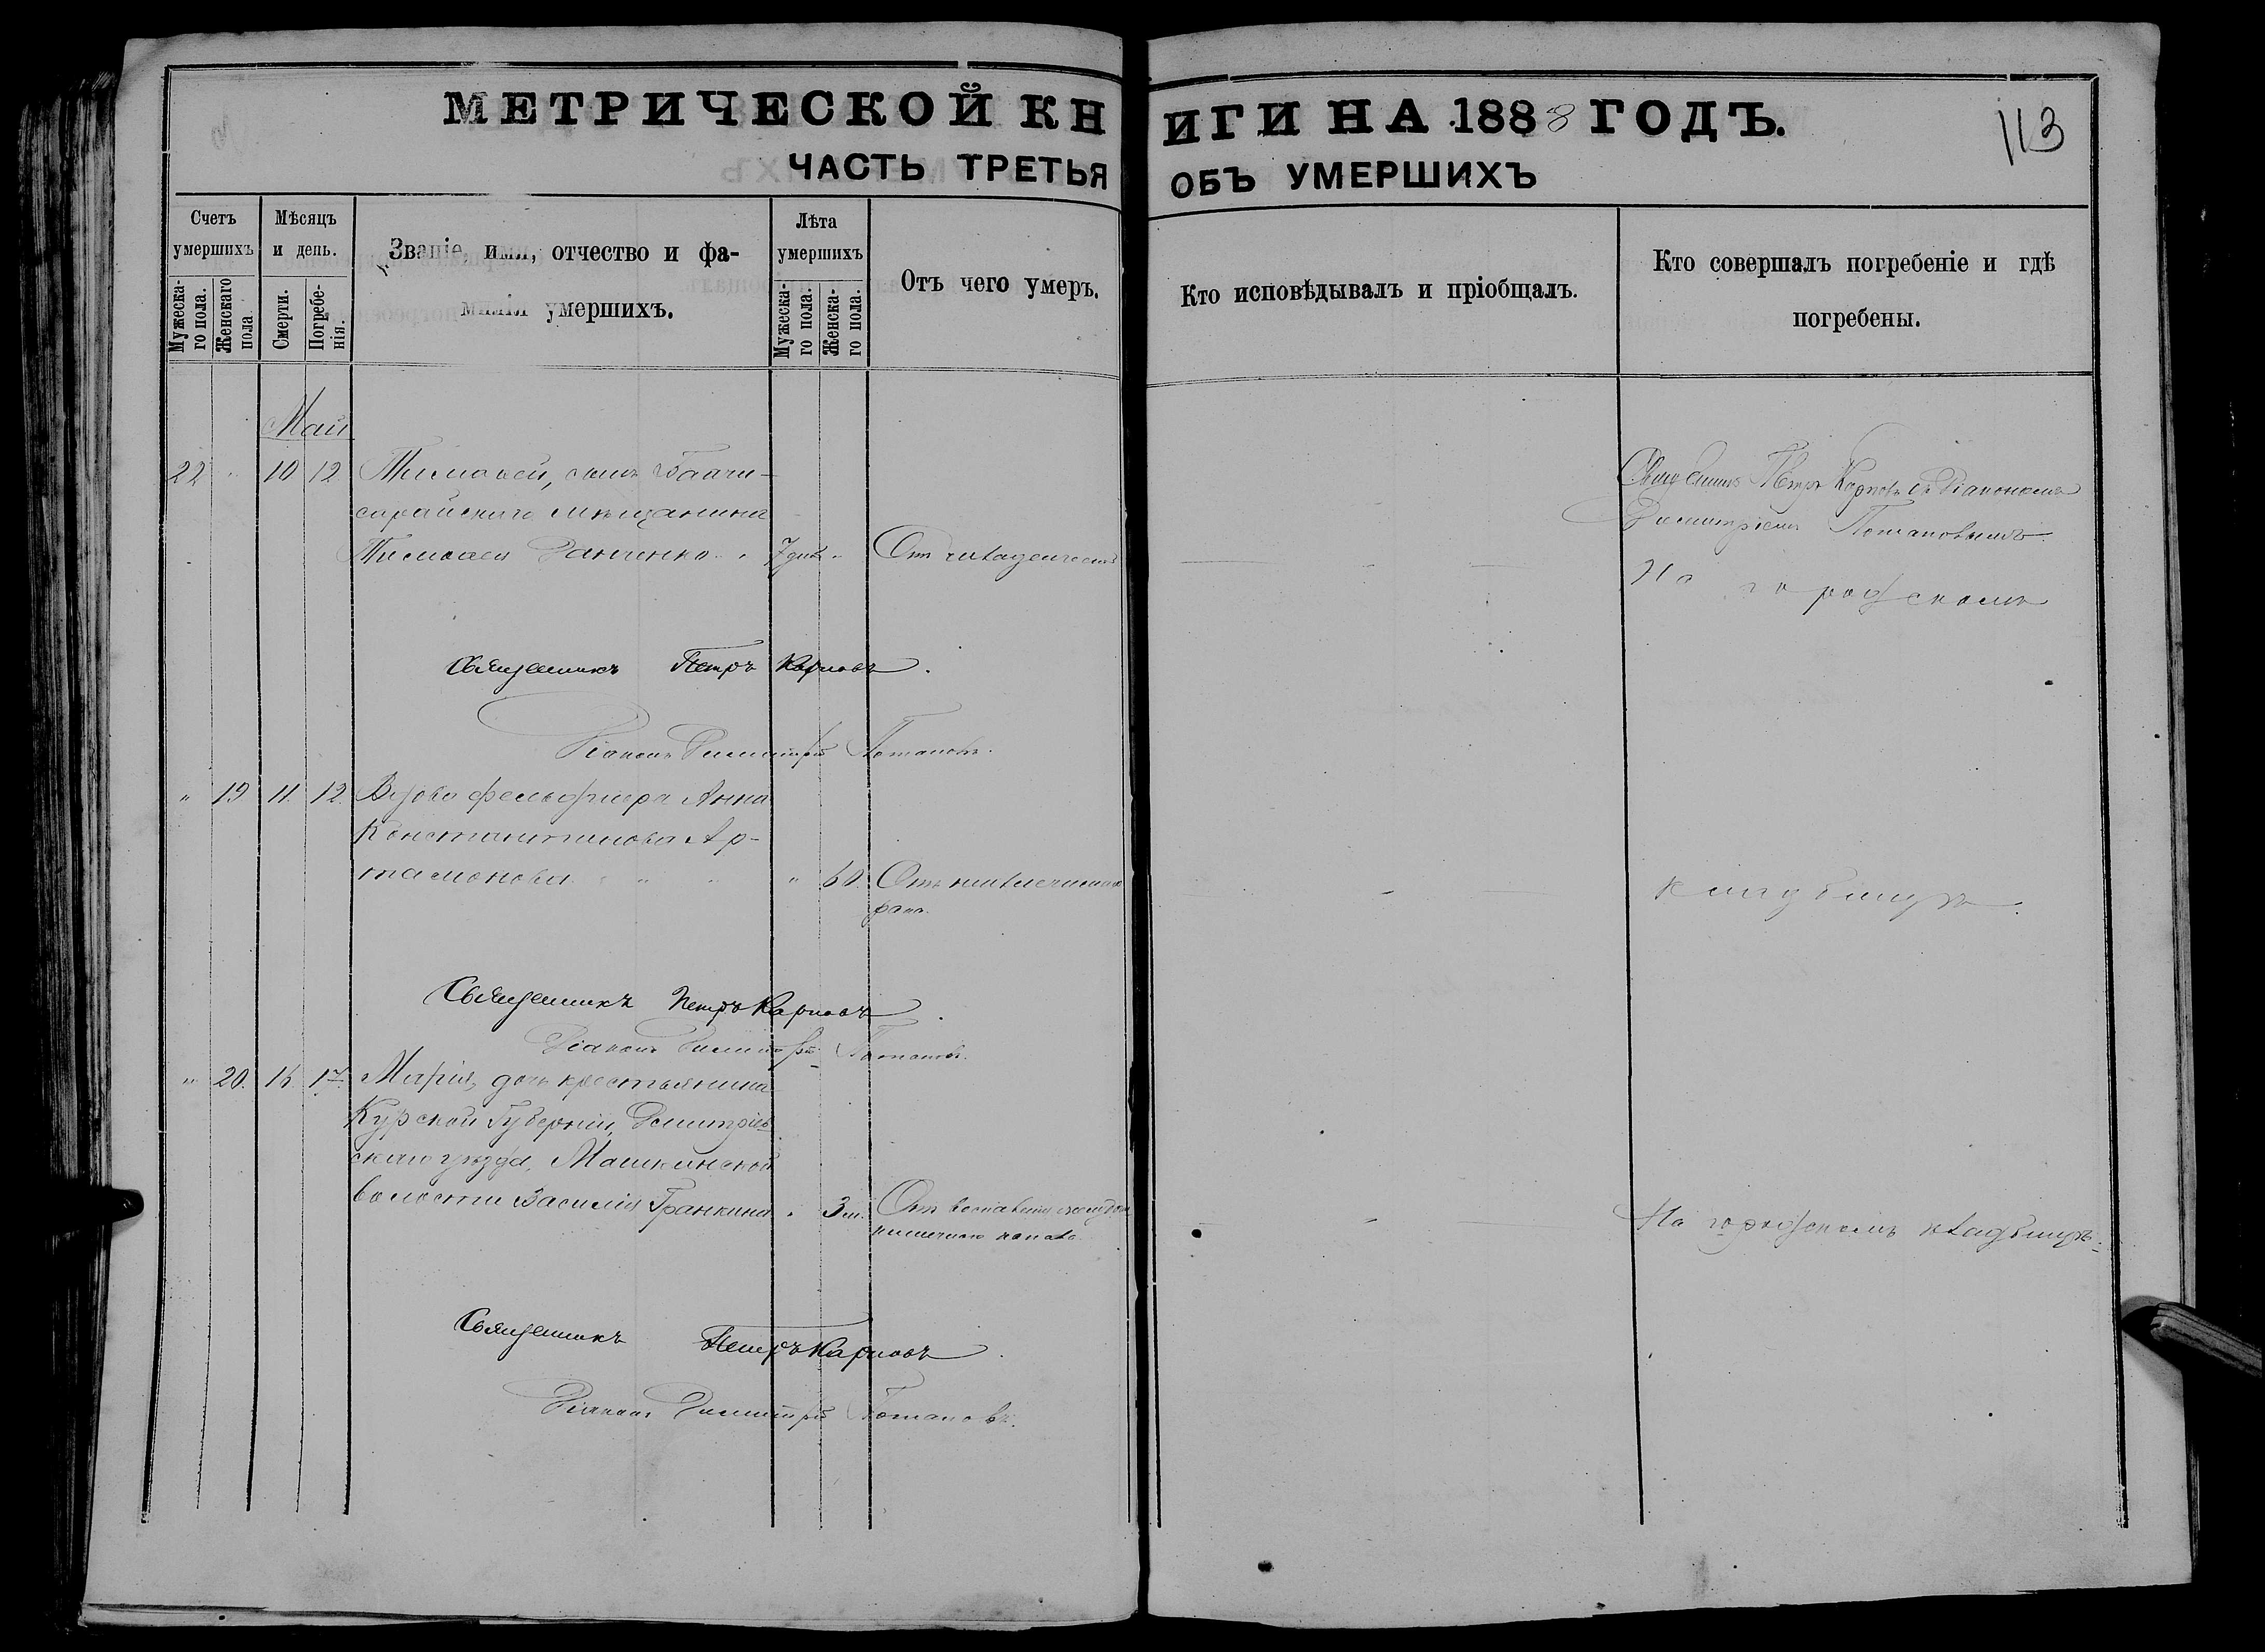 МЕТРИЧЕСКОЙ КНИГИ НА 1888 ГОДЪ.
113
ЧАСТЬ ТРЕТЬЯ ОБЪ УМЕРШИХЪ
Счетъ умершихъ
Мужеска-го пола.
Женскаго пола
Мѣсяцъ и день.
Смерти.
Погребе-нія.
Званіе, имя, отчество и фа-
милія умершихъ.
Лѣта умершихъ
Мужеска-го пола.
Женска-го пола.
Отъ чего умеръ.
Кто исповѣдывалъ и пріобщалъ.
Кто совершалъ погребеніе и гдѣ
погребены.
Май
22 " 10 12 Тимоѳей, сынъ Бахчи-
сарайскаго мѣщанина
Тимоѳея Ганченко 7 дней "
Отъ
Священникъ Петръ Карповъ съ Діакономъ
Димитріемъ Потаповымъ.
На городскомъ
Священникъ Петръ Карповъ.
Діаконъ Димитрій Потаповъ.
" 19 11. 12. Вдова фельдшера Анна
Константинова Ар-
тамонова " " " 60. Отъ
рака.
кладбищѣ.
Священникъ Петръ Карповъ.
Діаконъ Димитрій Потаповъ.
" 20. 17. Марія, дочь крестьянина
Курской Губерніи, Дмитріев-
скаго уѣзда, Машкинской
волости Василія Гранкина " 3 м. Отъ
кишечнаго канала.
На городскомъ кладбищѣ.
Священникъ Петръ Карповъ.
Діаконъ Димитрій Потаповъ.